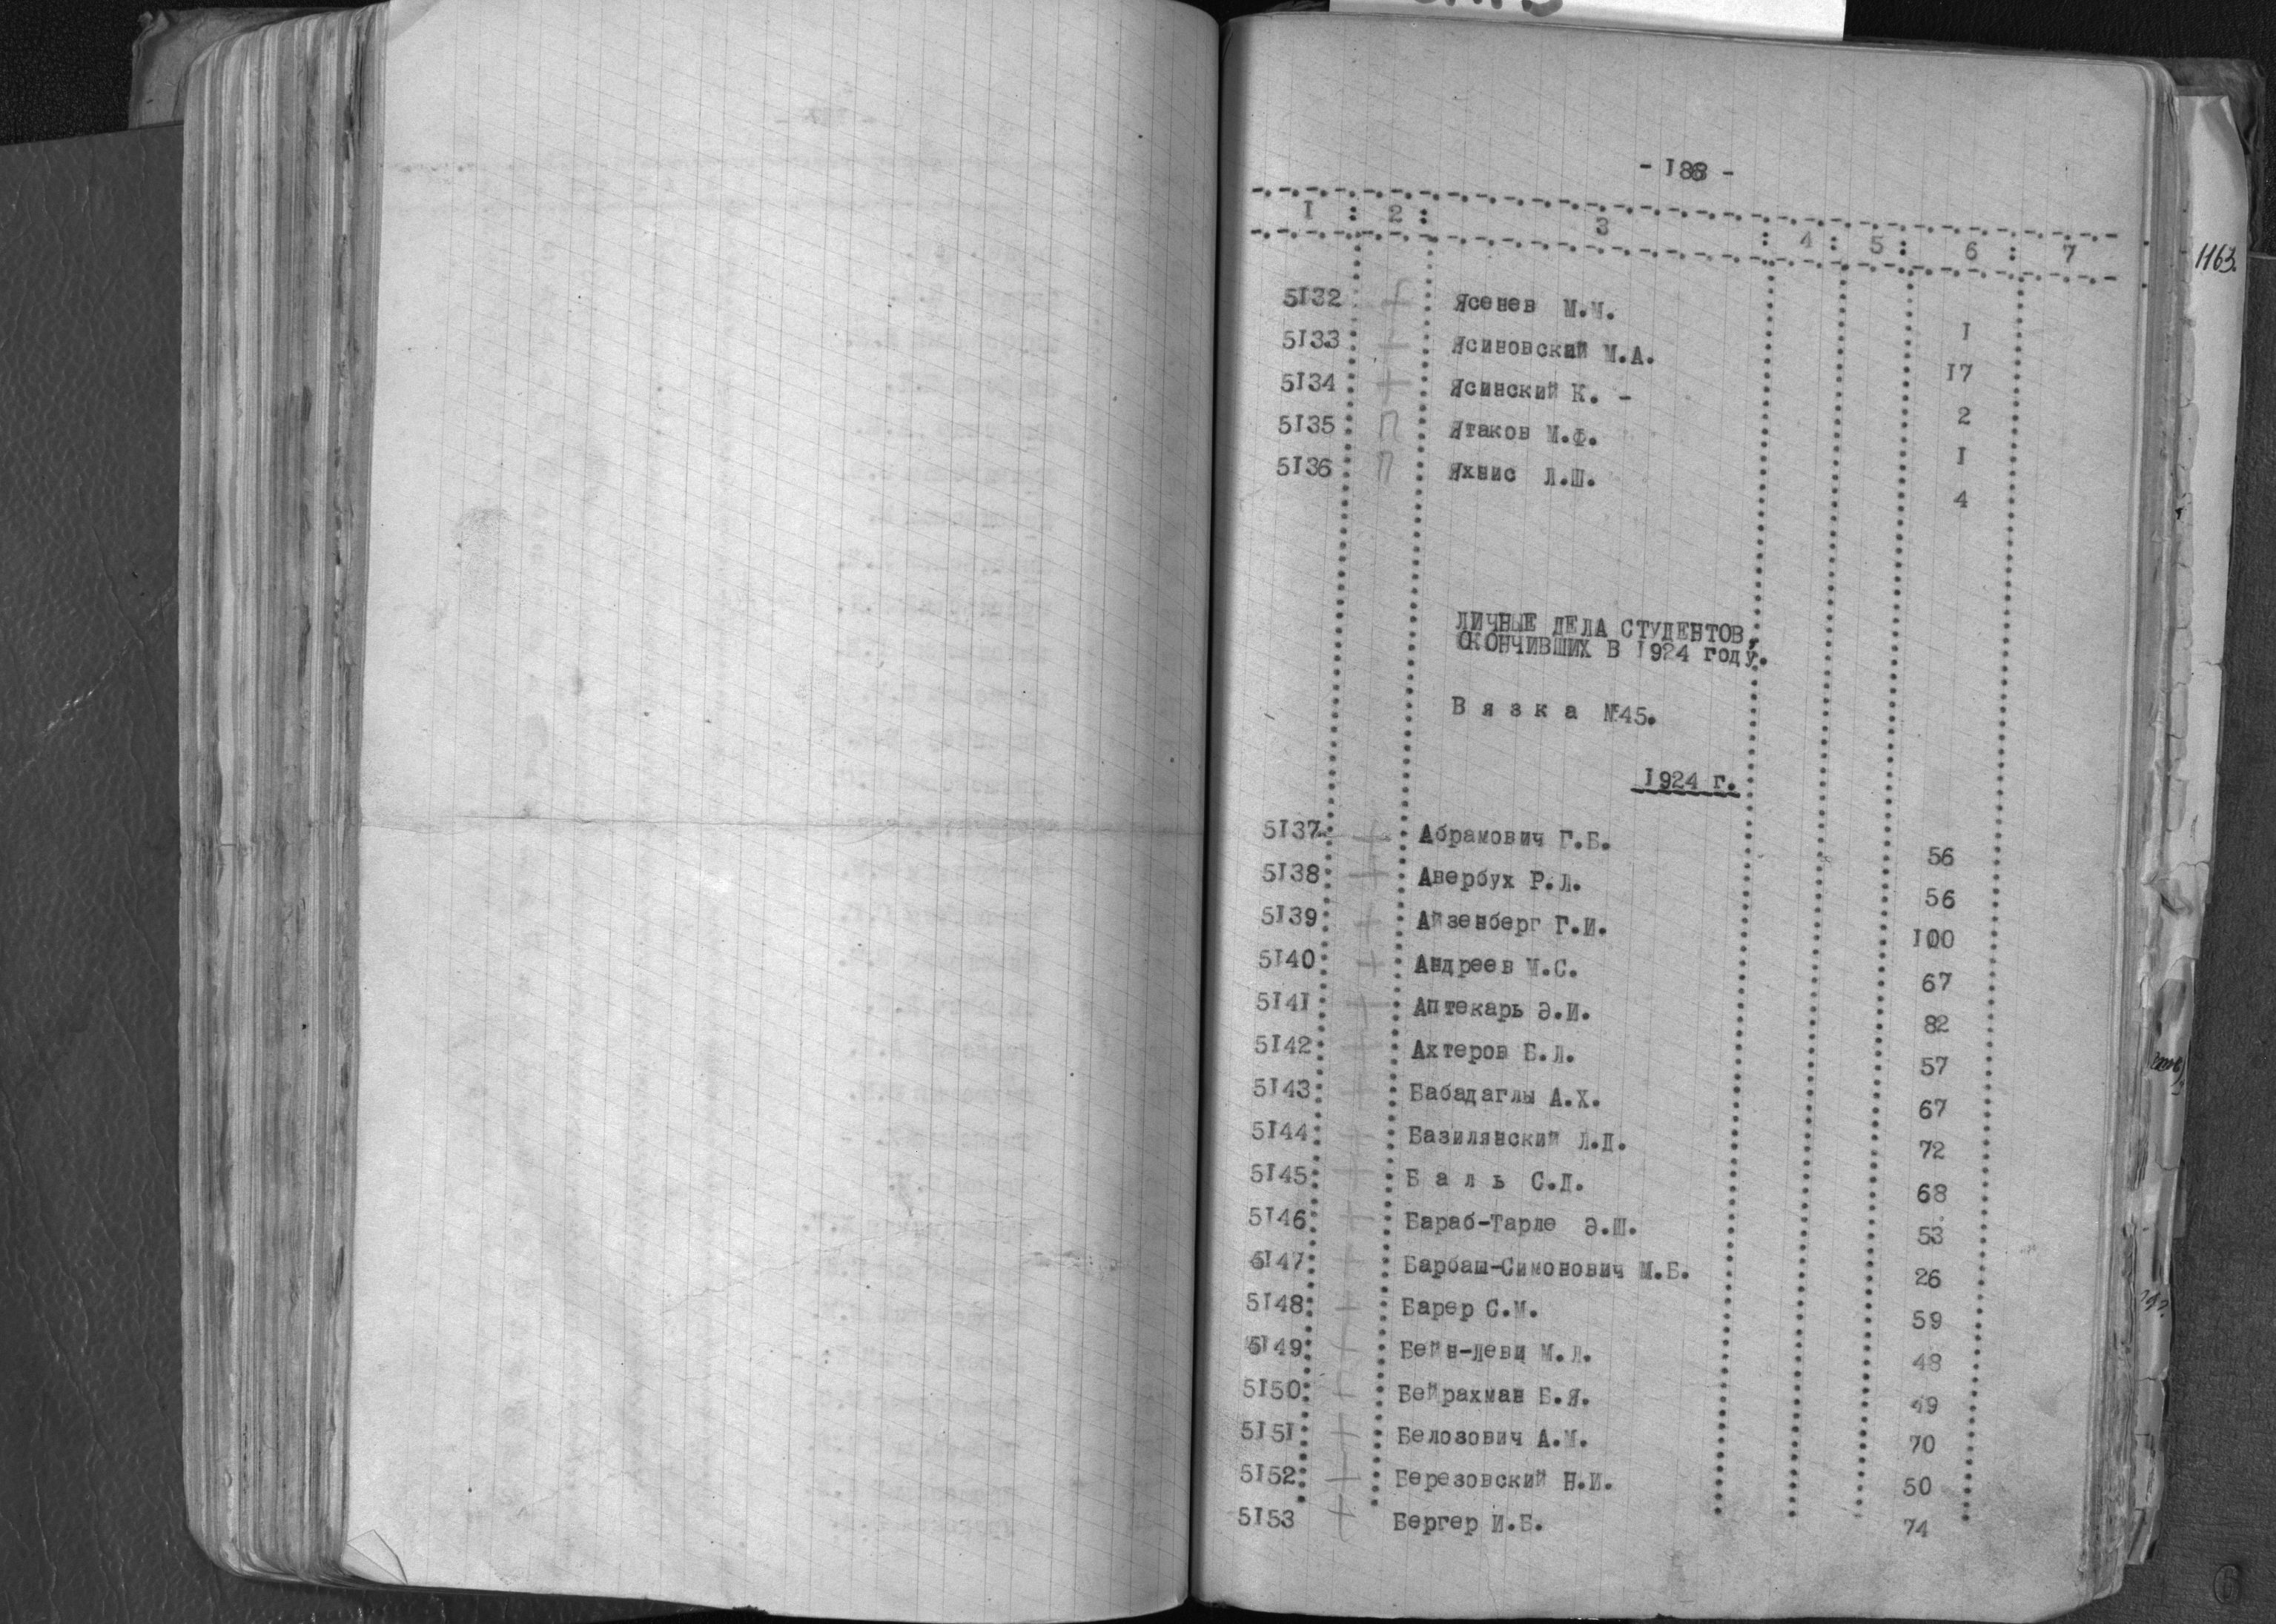 - 188 -
1163.
I : 2 : 3 : 4 : 5 : 6 : 7
5I32 + Ясенев М.М. I
5I33 + Ясиновский М.А. I7
5I34 + Ясинский К. - 2
5I35 П Ятаков М.Ф. I
5I36 П Яхнис Л.Ш. 4
ЛИЧНЫЕ ДЕЛА СТУДЕНТОВ,
ОКОНЧИВШИХ В I924 году.
В я з к а №45.
I924 г.
5I37 + Абрамович Г.Б. 56
5I38 + Авербух Р.Л. 56
5I39 + Айзенберг Г.И. I00
5I40 + Андреев М.С. 67
5I41 + Аптекарь Э.И. 82
5I42 + Ахтеров Б.Л. 57
5I43 + Бабадаглы А.Х. 67
5I44 + Базилянский Л.Д. 72
5I45 + Б а л ь С.Д. 68
5I46 + Бараб-Тарле Э.Ш. 53
5I47 + Барбаш-Симонович М.Б. 26
5I48 + Барер С.М. 59
5I49 + Бейн-леви М.Л. 48
5I50 + Бейрахман Б.Я. 49
5I5I + Белозович А.М. 70
5I52 + Березовский Н.И. 50
5I53 + Бергер И.Б. 74
6